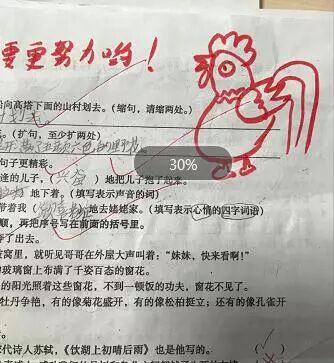 要更努力哟！
船向高塔下面的山村划去。（缩句，请缩两处。）
划去。
。（扩句，至少扩两处）
句子更精彩。
逢的儿子，（兴奋）地把儿子抱了起来。
地下着。（填写表示声音的词）
带着我（ ）地去姥姥家。（填写表示心情的四字词语）
顺，再把序号写在前面的括号里。
了出去。
窝里，就听见哥哥在外屋大声叫着：“妹妹，快来看啊！”
的玻璃窗上布满了千姿百态的窗花。
的阳光照着这些窗花，不到一顿饭的功夫，窗花不见了。
牡丹争艳，有的像菊花盛开，有的像松柏挺立；还有的像孔雀开
宋代诗人苏轼，《饮湖上初晴后雨》也是他写的。（×）
30%